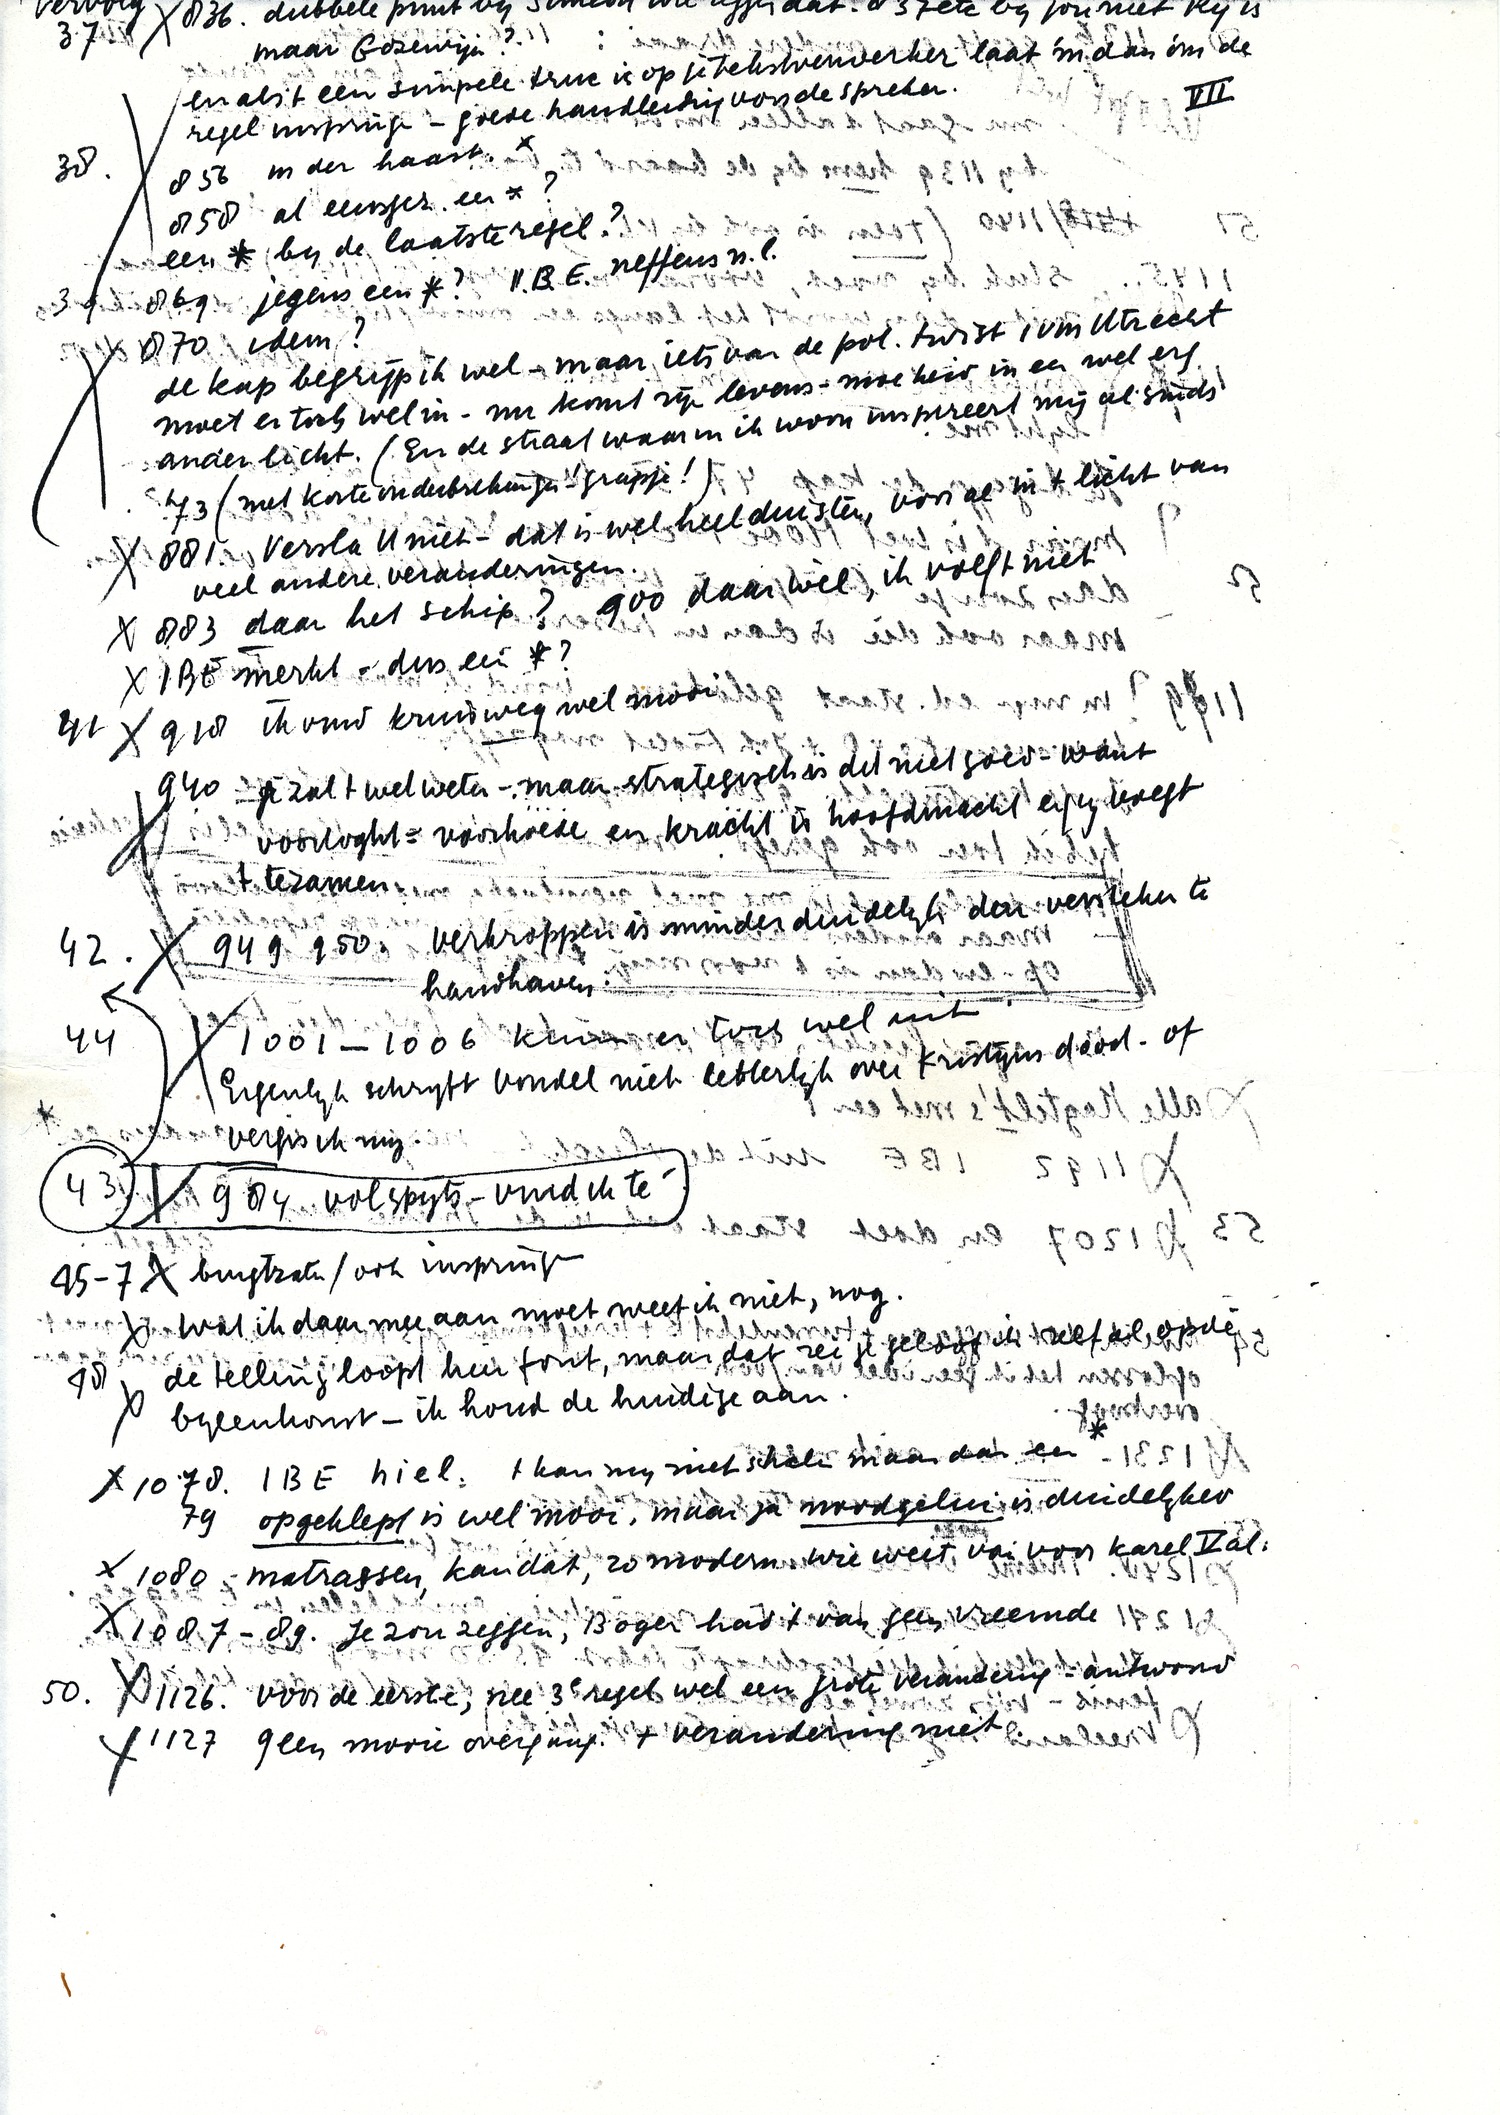 vervolg
37 X 836. dubbele punt by Simeon
maar Gozewijn?
en als t een simpele truc is op je tekstverwerker laat 'm dan óm de
regel inspringen – goede handleiding voor de spreker.
VII
38. 856 in der haast. *
858 al eensgez. een *?
een * by de laatste regel?
39 869 jegens een *? N.B.E. neffens n.l.
X 870 idem?
de kap begryp ik wel – maar iets van de pol. twist om Utrecht
moet er toch wel in – nu komt zyn levens-moeheid in een wel erg
ander licht. (En de straat waarin ik woon inspireert mij al sinds
'73 (met korte onderbrekingen! grapje!)
X 881. Versla U niet – dat is wel heel duister, vooral in t licht van
veel andere veranderingen.
X 883 daar het schip? 900 daar wel, ik volgt niet
X IBE merkt – dus een *?
41 X 918 ik vind kruisweg wel mooi
940 – je zal t wel weten – maar strategisch is dit niet goed – want
voortoght = voorhoede en kracht is hoofdmacht en jy voegt
t tezamen.
42. X 949 950. verkroppen is minder duidelyk dan versteken te
handhaven.
44 X 1001 – 1006 kunnen er toch wel uit
Eigenlyk schryft Vondel niet letterlyk over Kristyns dood. of
vergis ik my.
43 X 984 volspyts – vind ik te
45-7 X burgtzaten / ook inspringen
X Wat ik daar mee aan moet weet ik niet, nog.
48 X de telling loopt hier fout, maar dat zei je geloof ik zelf al, op de
byeenkomst – ik houd de huidige aan.
X 1078. IBE hiel. t kan my niet schelen maar dan een *
79 opgeklept is wel mooi, maar ja noodgelui is duidelyker
X 1080 – matrassen, kan dat, zo modern wie weet van voor Karel V al.
X 1087 – 89. Je zou zeggen, Boger had t van geen vreemde
50. X 1126. voor de eerste, nee 3e regel wel een grote verandering – antwoord
X 1127 geen mooie overgang. t verandering niet